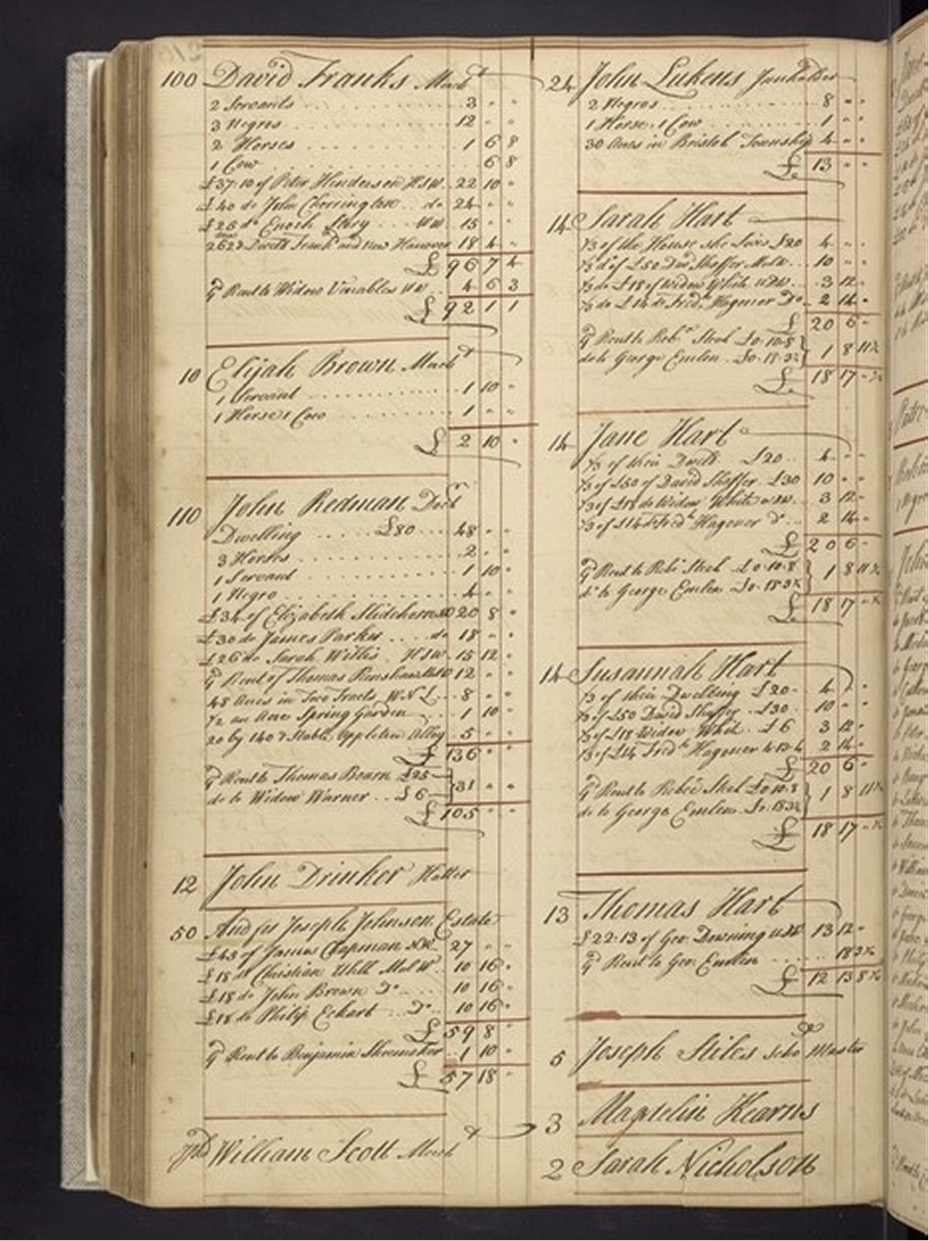 100 David Franks Merch.t
2 Servants 3 " "
3 Negros 12 " "
2 Horses 1 6 8
1 Cow 6 8
£37:10 of Peter Henderson H.S.W. 22 10 "
£40 do John Cherrington do 24 " "
£25 do Enoch Story W W 15 " "
18 4 "
£ 96 7 4
G.d Rent to Widow Venables W W 4 6 3
£ 92 1 1
10 Elijah Brown Merch.t
1 Servant 1 10 "
1 Horse 1 Cow 1 " "
£ 2 10 "
110 John Redman Doct.r
Dwelling £80 48 " "
3 Horses 2 " "
1 Servant 1 10 "
1 Negro 4 " "
£34 of Elizabeth 20 8 "
£30 do James Parker do 18 " "
£26 do Sarah Willis H S W 15 12 "
G.d Rent of Thomas Renshaw 12 " "
48 Acres in Two Tracts W N L 8 " "
1/2 an Acre Spring Garden 1 10 "
20 by 140 & Stable Appleton Alley 5 " "
£ 136 " "
G.d Rent to Thomas £25 } 31 " "
do to Widow Warner £6
£ 105 " "
12 John Drinker Hatter
50 And for Joseph Johnson Estate
£45 of James Chapman N W 27 " "
£18 do Christian Uhll Mul W 10 16 "
£18 do John Brown D.o 10 16 "
£18 do Philip Eckart D.o 10 16 "
£ 59 8 "
G.d Rent to Benjamin Shoemaker 1 10 "
£ 57 18 "
William Scott Merch.t
24 John Lukens Junkettler
2 Negros 8 " "
1 Horse 1 Cow 1 " "
30 Acres in Bristol Township 4 " "
£ 13 " "
14 Sarah Hart
1/3 of the House she lives £20 4 " "
1/3 d.o of £50 Dav. Shaffer Mulb 10 " "
1/3 do £18 of Widow White U D W 3 12 "
1/3 do £14 do Fred.k Hagener D.o 2 14 "
£ 20 6 "
G.d Rent to Rob.t Steel £0.10.8 } 1 8 11 1/2
do to George Emlen £0.18.3 1/2
£ 18 17 " 1/2
14 Jane Hart
1/3 of their Dwell. £20 4 " "
1/3 of £50 of David Shaffer £30 10 " "
1/3 of £18 do Widow White 3 12 "
1/3 of £14 d.o Fred.k Hagener D.o 2 14 "
£ 20 6 "
G.d Rent to Rob.t Steel £0.10.8 } 1 8 11 1/2
d.o to George Emlen £0.18.3 1/2
£ 18 17 " 1/2
14 Susannah Hart
1/3 of their Dwelling £20 4 " "
1/3 of £50 David Shaffer £30 10 " "
1/3 of £18 Widow Whit. £6 3 12 "
1/3 of £14 Fred.k Hagener 4.13.4 2 14 "
£ 20 6 "
G.d Rent to Robe.t Steel £0.10.8 } 1 8 11 1/2
do to George Emlen £0.18.3 1/2
£ 18 17 " 1/2
13 Thomas Hart
£22.13 of Geo. Downing U D W 13 12 "
G.d Rent to Geo. Emlen 18 3 1/2
£ 12 13 8 1/2
5 Joseph Stiles Scho Master
3 Magdelin Kearns
2 Sarah Nicholson